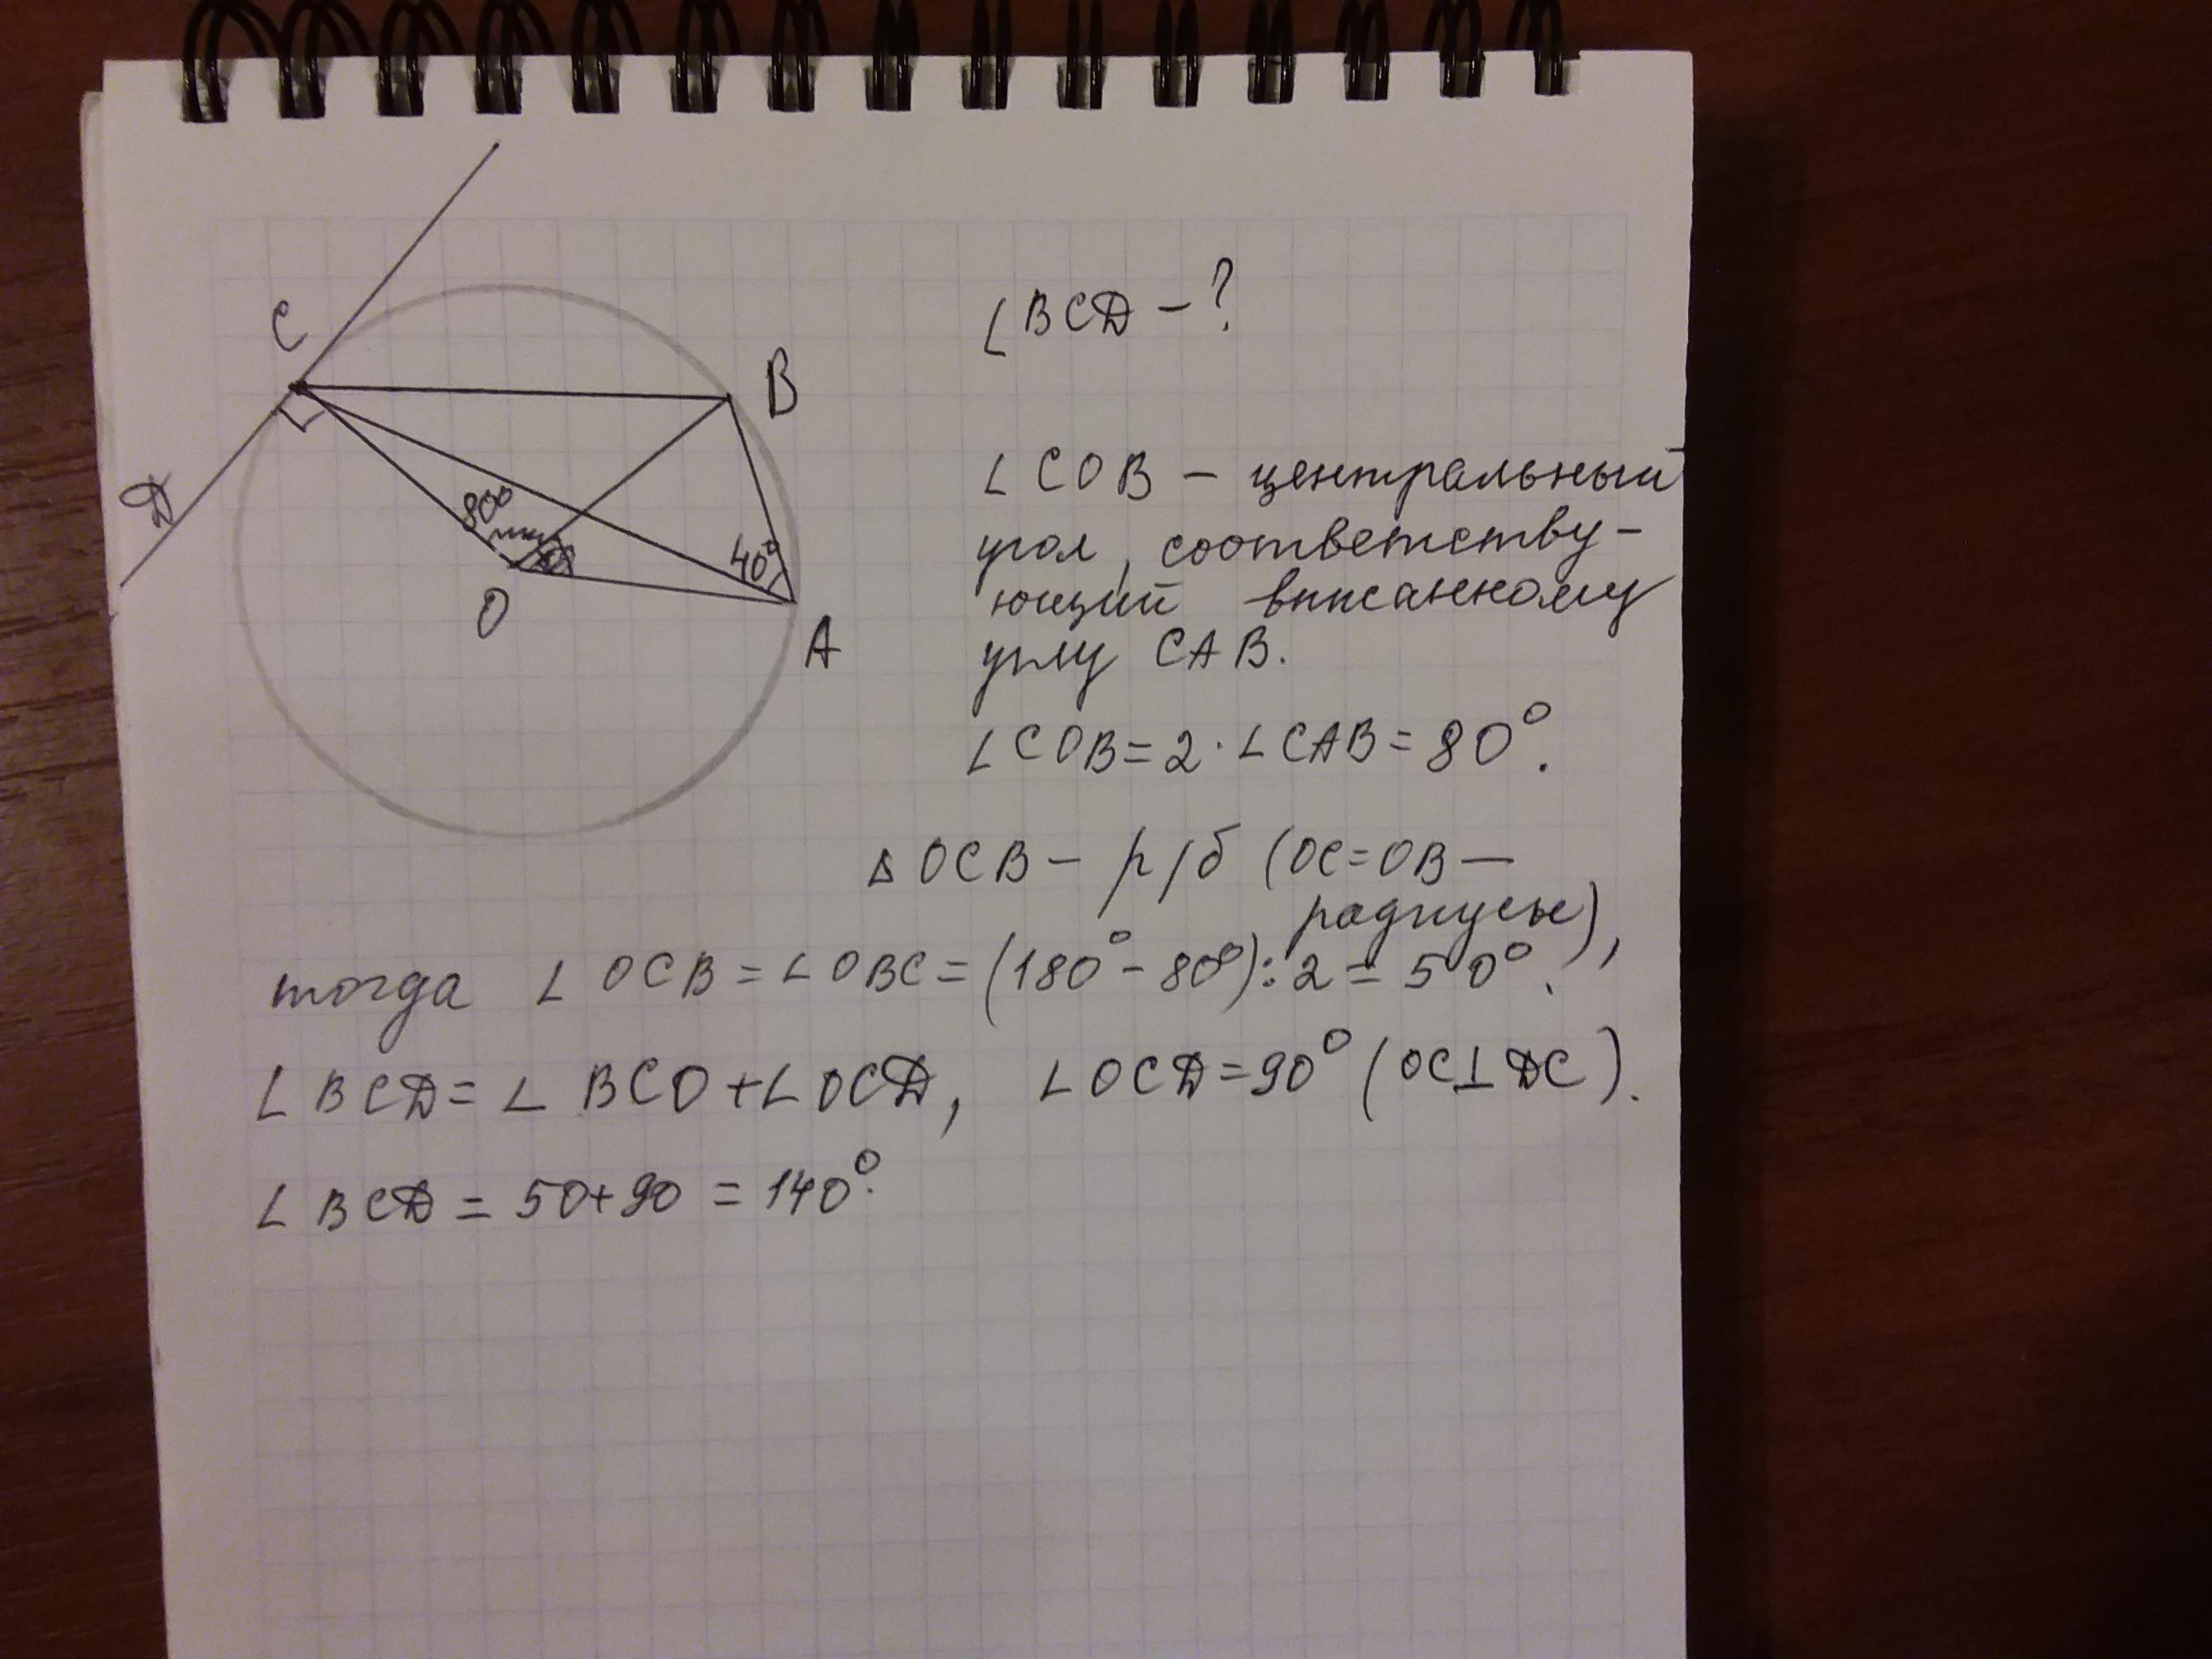 C
B
D
80°
40°
O
A
∠BCD – ?
∠COB – центральный
угол, соответству-
ющий вписанному
углу CAB.
∠COB = 2 · ∠CAB = 80°.
△OCB – р/б (OC=OB –
радиусы),
тогда ∠OCB = ∠OBC = (180° – 80°) : 2 = 50°.
∠BCD = ∠BCO + ∠OCD, ∠OCD = 90° (OC⊥DC).
∠BCD = 50+90 = 140°.